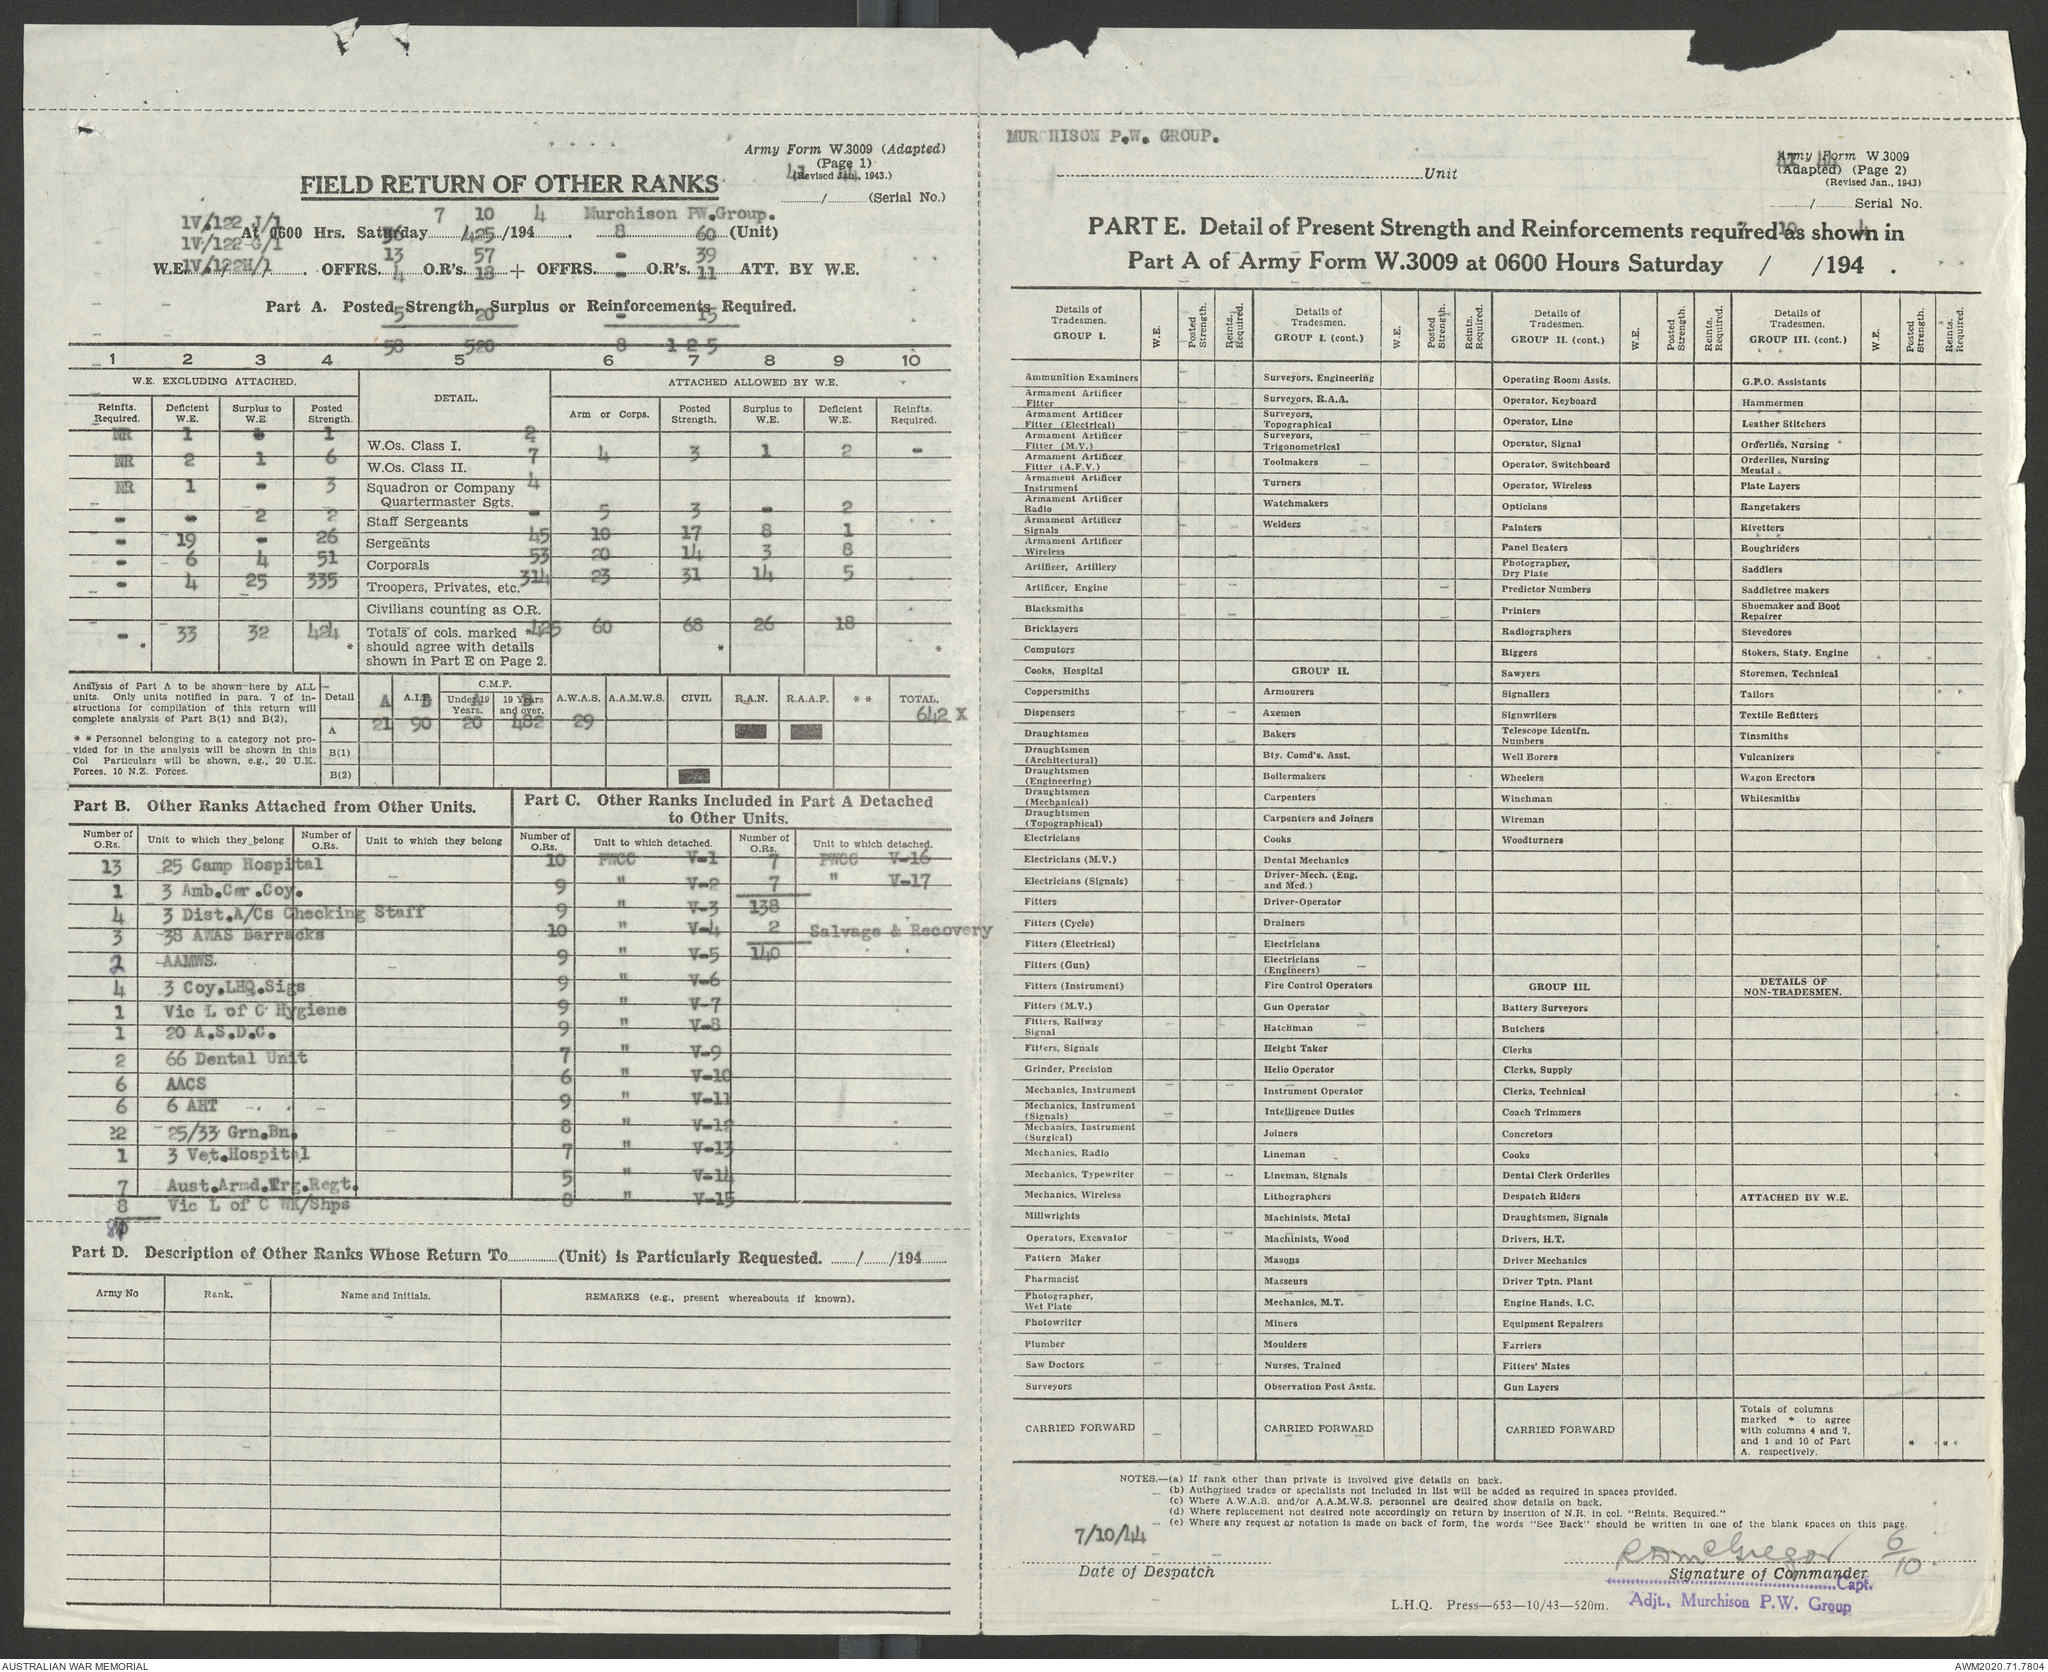 Army Form W.3009 (Adapted)
(Page 1)
(Revised Jan., 1943.)
FIELD RETURN OF OTHER RANKS
....../...... (Serial No.)
7 10 4 Murchison PW.Group.
1V/122 J/1
At 0600 Hrs. Saturday ....../....../194 . ............ (Unit)
1V/122 G/1
56 425 8 60
13 57 - 39
W.E. 1V/122H/1 OFFRS. 4 O.R's. 18 + OFFRS. - O.R's. 11 ATT. BY W.E.
Part A. Posted Strength, Surplus or Reinforcements Required.
5 20 - 15
58 520 8 125
1 2 3 4 5 6 7 8 9 10
W.E. EXCLUDING ATTACHED. DETAIL. ATTACHED ALLOWED BY W.E.
Reinfts. Required. Deficient W.E. Surplus to W.E. Posted Strength. Arm or Corps. Posted Strength. Surplus to W.E. Deficient W.E. Reinfts. Required.
NR 1 - 1 W.Os. Class I. 2
NR 2 1 6 W.Os. Class II. 7 4 3 1 2 -
NR 1 - 3 Squadron or Company Quartermaster Sgts. 4
- - 2 2 Staff Sergeants - 5 3 - 2
- 19 - 26 Sergeants 45 10 17 8 1
- 6 4 51 Corporals 53 20 14 3 8
- 4 25 335 Troopers, Privates, etc. 314 23 31 14 5
Civilians counting as O.R.
- 33 32 424 Totals of cols. marked * 425 60 68 26 18
should agree with details
shown in Part E on Page 2.
Analysis of Part A to be shown here by ALL
units. Only units notified in para. 7 of in-
structions for compilation of this return will
complete analysis of Part B(1) and B(2).
* * Personnel belonging to a category not pro-
vided for in the analysis will be shown in this
Col Particulars will be shown, e.g., 20 U.K.
Forces, 10 N.Z. Forces.
Detail A.I.F. C.M.F. Under 19 Years. 19 Years and over. A.W.A.S. A.A.M.W.S. CIVIL R.A.N. R.A.A.F. * * TOTAL.
A B A B
A 21 90 20 482 29 642 X
B(1)
B(2)
Part B. Other Ranks Attached from Other Units.
Number of O.Rs. Unit to which they belong Number of O.Rs. Unit to which they belong
13 25 Camp Hospital
1 3 Amb.Car.Coy.
4 3 Dist.A/Cs Checking Staff
3 38 AWAS Barracks
2 AAMWS.
4 3 Coy.LHQ.Sigs
1 Vic L of C Hygiene
1 20 A.S.D.C.
2 66 Dental Unit
6 AACS
6 6 AHT
22 25/33 Grn.Bn.
1 3 Vet.Hospital
7 Aust.Armd.Trg.Regt.
8 Vic L of C WK/Shps
Part C. Other Ranks Included in Part A Detached
to Other Units.
Number of O.Rs. Unit to which detached. Number of O.Rs. Unit to which detached.
10 PWCC V-1 7 PWCC V-16
9 " V-2 7 " V-17
9 " V-3 138
10 " V-4 2 Salvage & Recovery
9 " V-5 140
9 " V-6
9 " V-7
9 " V-8
7 " V-9
6 " V-10
9 " V-11
8 " V-12
7 " V-13
5 " V-14
8 " V-15
Part D. Description of Other Ranks Whose Return To............(Unit) is Particularly Requested. ....../....../194......
Army No Rank. Name and Initials. REMARKS (e.g., present whereabouts if known).
MURCHISON P.W. GROUP.
............Unit
Army Form W.3009
(Adapted) (Page 2)
(Revised Jan., 1943)
....../...... Serial No.
PART E. Detail of Present Strength and Reinforcements required as shown in
Part A of Army Form W.3009 at 0600 Hours Saturday / /194 .
Details of Tradesmen. GROUP I. W.E. Posted Strength. Reints. Required.
Ammunition Examiners
Armament Artificer Fitter
Armament Artificer Fitter (Electrical)
Armament Artificer Fitter (M.V.)
Armament Artificer Fitter (A.F.V.)
Armament Artificer Instrument
Armament Artificer Radio
Armament Artificer Signals
Armament Artificer Wireless
Artificer, Artillery
Artificer, Engine
Blacksmiths
Bricklayers
Computors
Cooks, Hospital
Coppersmiths
Dispensers
Draughtsmen
Draughtsmen (Architectural)
Draughtsmen (Engineering)
Draughtsmen (Mechanical)
Draughtsmen (Topographical)
Electricians
Electricians (M.V.)
Electricians (Signals)
Fitters
Fitters (Cycle)
Fitters (Electrical)
Fitters (Gun)
Fitters (Instrument)
Fitters (M.V.)
Fitters, Railway Signal
Fitters, Signals
Grinder, Precision
Mechanics, Instrument
Mechanics, Instrument (Signals)
Mechanics, Instrument (Surgical)
Mechanics, Radio
Mechanics, Typewriter
Mechanics, Wireless
Millwrights
Operators, Excavator
Pattern Maker
Pharmacist
Photographer, Wet Plate
Photowriter
Plumber
Saw Doctors
Surveyors
CARRIED FORWARD
Details of Tradesmen. GROUP I. (cont.) W.E. Posted Strength. Reints. Required.
Surveyors, Engineering
Surveyors, R.A.A.
Surveyors, Topographical
Surveyors, Trigonometrical
Toolmakers
Turners
Watchmakers
Welders
GROUP II.
Armourers
Axemen
Bakers
Bty. Comd's. Asst.
Boilermakers
Carpenters
Carpenters and Joiners
Cooks
Dental Mechanics
Driver-Mech. (Eng. and Med.)
Driver-Operator
Drainers
Electricians
Electricians (Engineers)
Fire Control Operators
Gun Operator
Hatchman
Height Taker
Helio Operator
Instrument Operator
Intelligence Duties
Joiners
Lineman
Lineman, Signals
Lithographers
Machinists, Metal
Machinists, Wood
Masons
Masseurs
Mechanics, M.T.
Miners
Moulders
Nurses, Trained
Observation Post Assts.
CARRIED FORWARD
Details of Tradesmen. GROUP II. (cont.) W.E. Posted Strength. Reints. Required.
Operating Room Assts.
Operator, Keyboard
Operator, Line
Operator, Signal
Operator, Switchboard
Operator, Wireless
Opticians
Painters
Panel Beaters
Photographer, Dry Plate
Predictor Numbers
Printers
Radiographers
Riggers
Sawyers
Signallers
Signwriters
Telescope Identfn. Numbers
Well Borers
Wheelers
Winchman
Wireman
Woodturners
GROUP III.
Battery Surveyors
Butchers
Clerks
Clerks, Supply
Clerks, Technical
Coach Trimmers
Concretors
Cooks
Dental Clerk Orderlies
Despatch Riders
Draughtsmen, Signals
Drivers, H.T.
Driver Mechanics
Driver Tptn. Plant
Engine Hands, I.C.
Equipment Repairers
Farriers
Fitters' Mates
Gun Layers
CARRIED FORWARD
Details of Tradesmen. GROUP III. (cont.) W.E. Posted Strength. Reints. Required.
G.P.O. Assistants
Hammermen
Leather Stitchers
Orderlies, Nursing
Orderlies, Nursing Mental
Plate Layers
Rangetakers
Rivetters
Roughriders
Saddlers
Saddletree makers
Shoemaker and Boot Repairer
Stevedores
Stokers, Staty. Engine
Storemen, Technical
Tailors
Textile Refitters
Tinsmiths
Vulcanizers
Wagon Erectors
Whitesmiths
DETAILS OF NON-TRADESMEN.
ATTACHED BY W.E.
Totals of columns
marked * to agree
with columns 4 and 7,
and 1 and 10 of Part
A. respectively.
NOTES.—(a) If rank other than private is involved give details on back.
(b) Authorised trades or specialists not included in list will be added as required in spaces provided.
(c) Where A.W.A.S. and/or A.A.M.W.S. personnel are desired show details on back.
(d) Where replacement not desired note accordingly on return by insertion of N.R. in col. "Reints. Required."
(e) Where any request or notation is made on back of form, the words "See Back" should be written in one of the blank spaces on this page.
7/10/44
Date of Despatch
R A McGregor 6/10
Signature of Commander
Capt.
Adjt., Murchison P.W. Group
L.H.Q. Press—653—10/43—520m.
AUSTRALIAN WAR MEMORIAL
AWM2020.71.7804